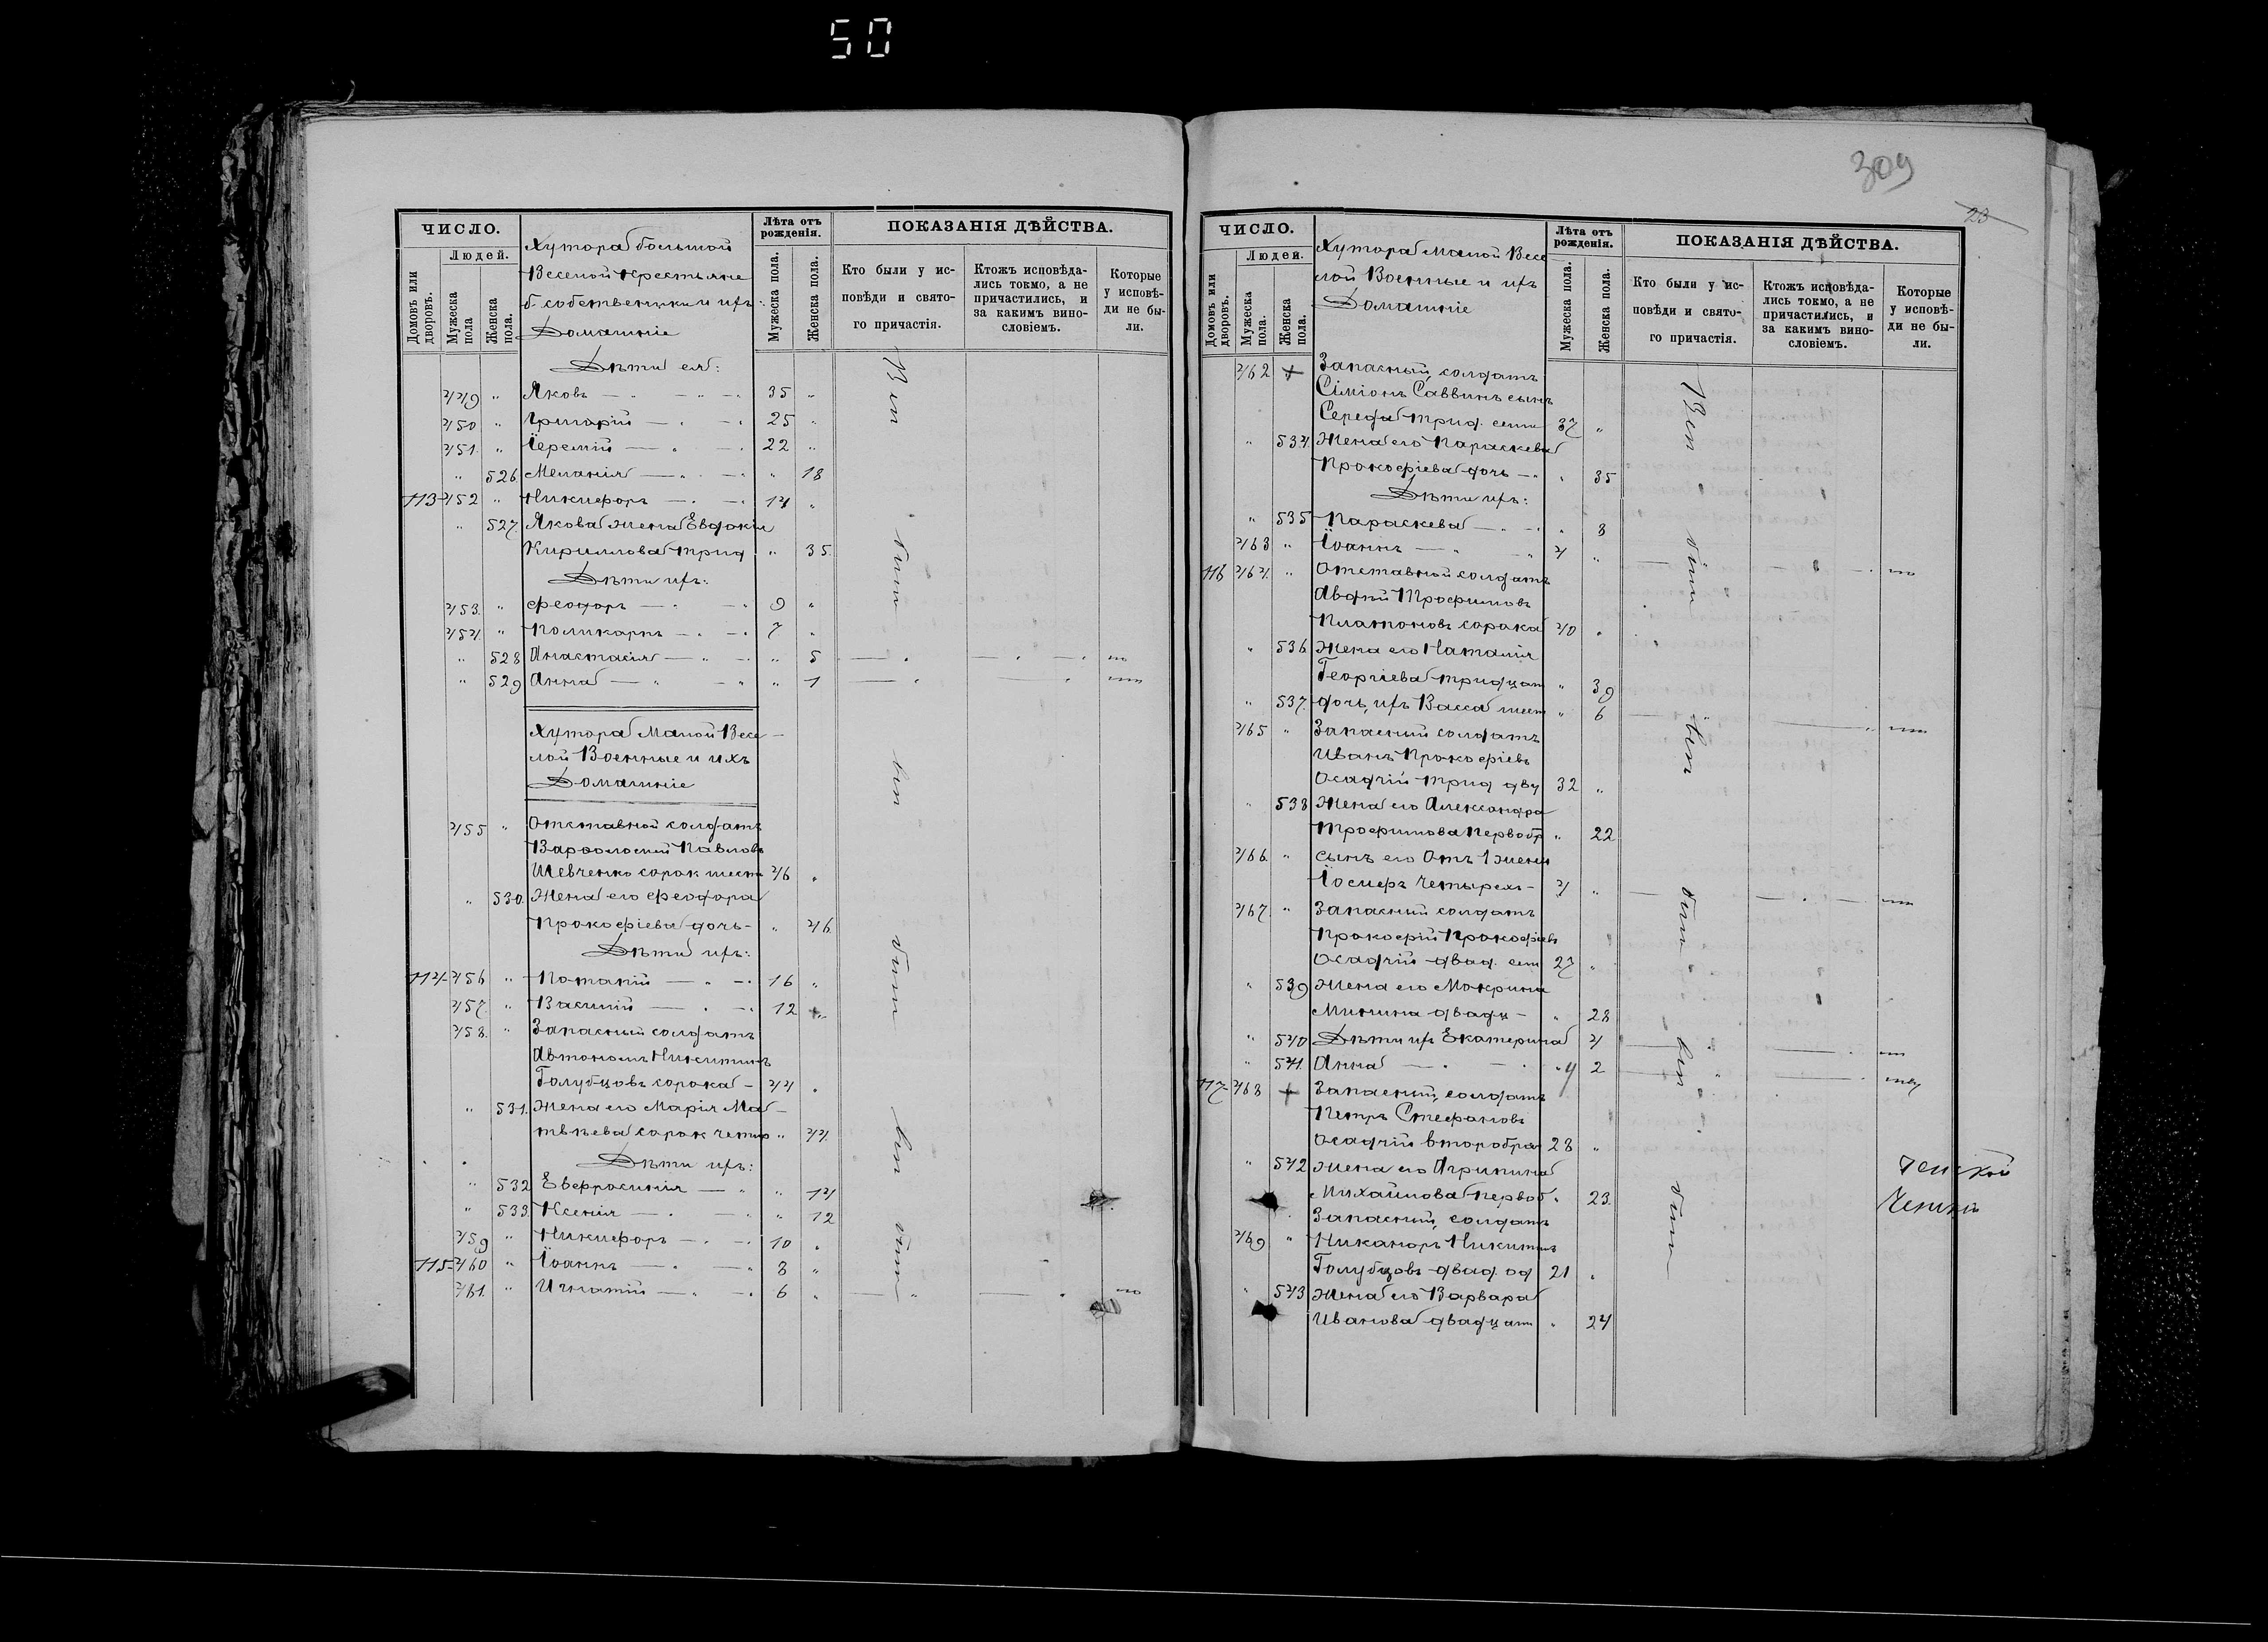 50
ЧИСЛО.
Людей.
Домовъ или дворовъ.
Мужеска пола
Женска пола.
Хутора большой
Веселой Крестьяне
б. собственники и ихъ
Домашніе
Лѣта отъ рожденія.
Мужеска пола.
Женска пола.
ПОКАЗАНІЯ ДѢЙСТВА.
Кто были у ис-
повѣди и свято-
го причастія.
Ктожъ исповѣда-
лись токмо, а не
причастились, и
за какимъ вино-
словіемъ.
Которые
у исповѣ-
ди не бы-
ли.
Дѣти ея:
449 " Яковъ — " — " — 35 "
450 " Григорій — " — " 25 "
451. " Іеремій — " — " 22 "
" 526. Меланія — " — " " 18
113 452 " Никифоръ — " — " 14 "
" 527. Якова жена Евдокія
Кириллова трид " 35.
Дѣти ихъ:
453. " Феодоръ — " — " 9 "
454. " Поликарпъ — " — " 7 "
" 528 Анастасія — " — " " 5
" 529 Анна — " — " " 1
Хутора Малой Весе-
лой Военные и ихъ
Домашніе
455 " Отставной солдатъ
Варфоломей Павловъ
Шевченко сорок шест 46 "
" 530. Жена его Феодора
Прокофіева дочь - " 46
Дѣти ихъ:
114 456 " Потапій — " — " 16 "
457. " Василій — " — " 12 "
458. " Запасный солдатъ
Автономъ Никитинъ
Голубцовъ сорока - 44 "
" 531. Жена его Марія Ма-
твѣева сорок четыр " 44.
Дѣти ихъ:
" 532 Евфросинія — " " 14
" 533. Ксенія — " — " " 12
459 " Никифоръ — " — " 10 "
115 460 " Іоаннъ — " — " 8 "
461. " Игнатій — " — " 6 "
Вси
были
вси
были
вси
были
309
23
ЧИСЛО.
Людей.
Домовъ или дворовъ.
Мужеска пола.
Женска пола.
Хутора Малой Весе
лой Военные и ихъ
Домашніе
Лѣта отъ рожденія.
Мужеска пола.
Женска пола.
ПОКАЗАНІЯ ДѢЙСТВА.
Кто были у ис-
повѣди и свято-
го причастія.
Ктожъ исповѣда-
лись токмо, а не
причастились, и
за какимъ вино-
словіемъ.
Которые
у исповѣ-
ди не бы-
ли.
462 + Запасный солдатъ
Сіміонъ Саввинъ сынъ
Середа трид. семи 37 "
" 534. Жена его Параскева
Прокофіева дочь — " " 35
Дѣти ихъ:
" 535 Параскева — " — " " 8
463 " Іоаннъ — " " 4 "
116 464. " Отставной солдатъ
Авдій Трофимовъ
Платоновъ сорока 40 "
" 536 Жена его Наталія
Георгіева тридцат " 39
" 537. дочь ихъ Васса шест " 6
465 " Запасный солдатъ
Иванъ Прокофіевъ
Осадчій трид дву 32 "
" 538 Жена его Александра
Трофимова Первобр " 22
466. " сынъ его Отъ 1 жены
Іосифъ Четырехъ - 4 "
467. " Запасный солдатъ
Прокофій Прокофіевъ
Осадчій двад. сем 27 "
" 539 Жена его Макрина
Минина двадц - " 28
" 540 Дѣти ихъ Екатерина 4
" 541. Анна — " — " 2
117 468 + Запасный солдатъ
Петръ Стефановъ
Осадчій второбра 28 "
" 542 жена его Агрипина
Михайлова Первоб " 23.
Запасный солдатъ
469 " Никаноръ Никитинъ
Голубцовъ двад од 21 "
" 543 Жена его Варвара
Иванова двадцат " 24
Вси
были
вси
были
вси
были